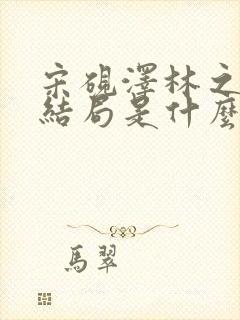 宋硯澤林之
結局是什麼
馬翠